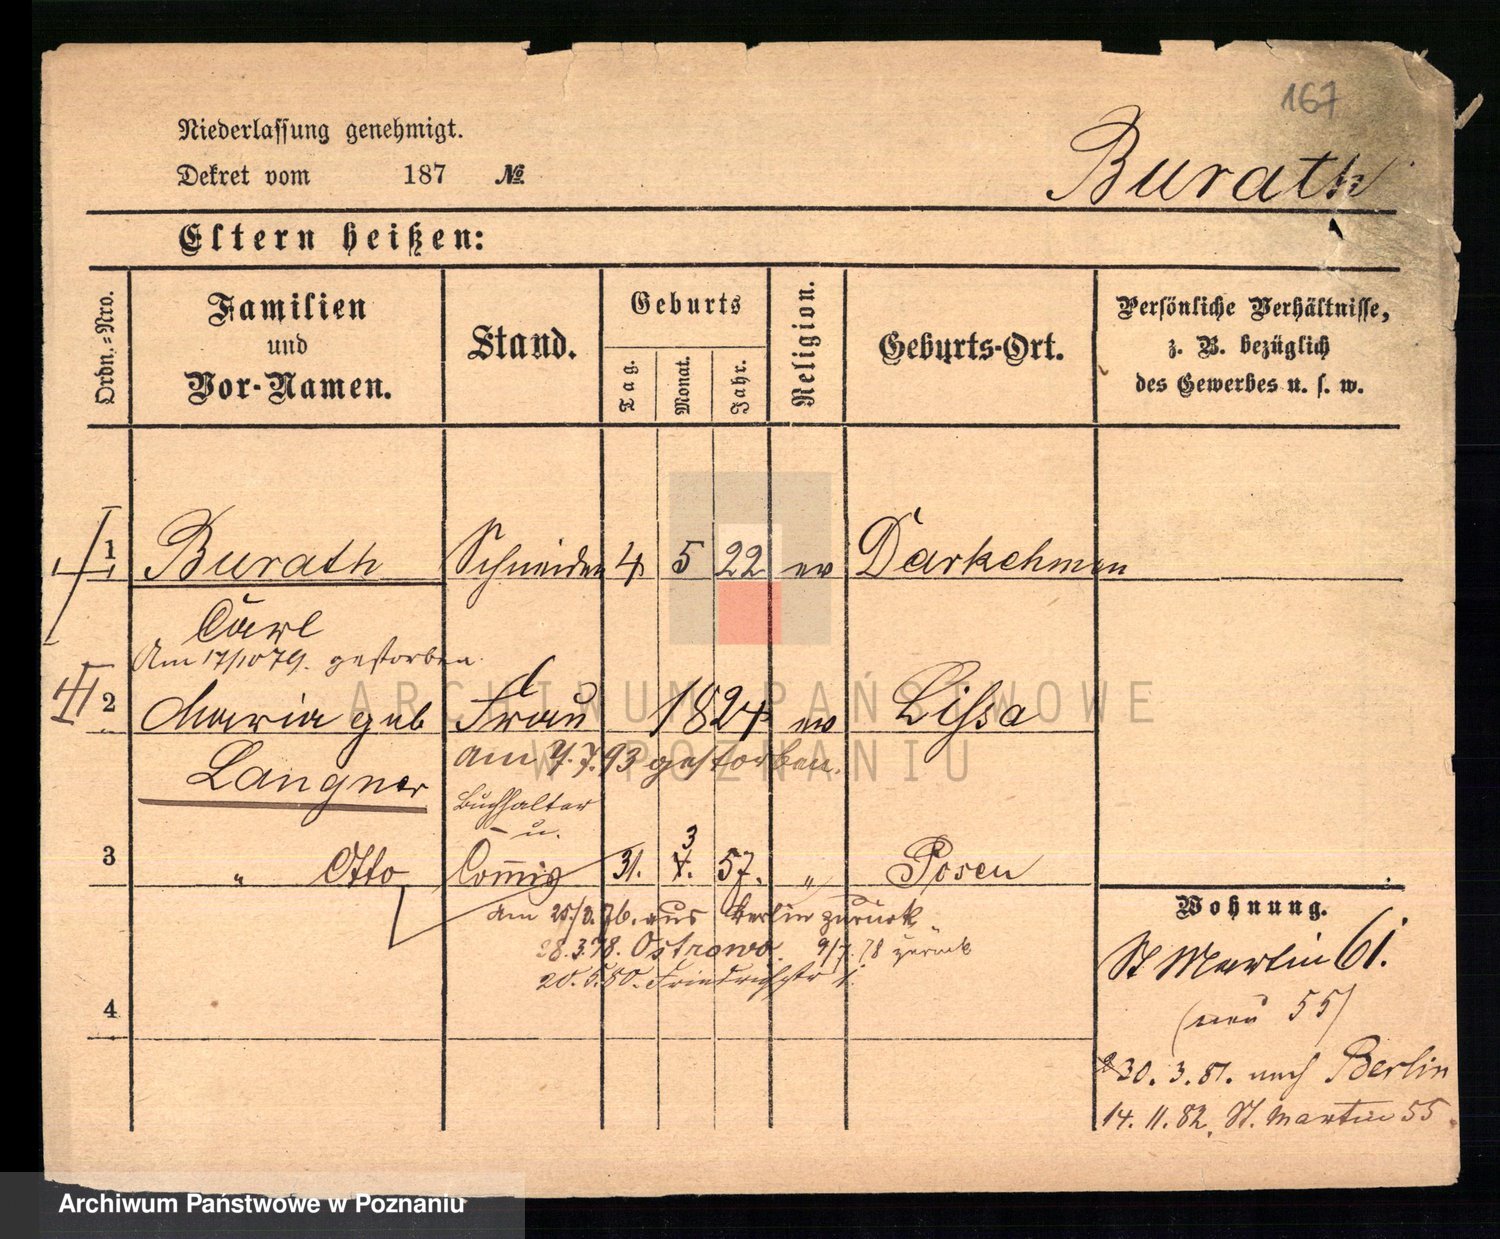 167
Niederlassung genehmigt.
Dekret vom 187 №
Burath
Eltern heißen:
Ordn.-Nro.
Familien
und
Vor-Namen.
Stand.
Geburts
Tag.
Monat.
Jahr.
Religion.
Geburts-Ort.
Persönliche Verhältnisse,
z. B. bezüglich
des Gewerbes u. s. w.
1 Burath Schneider 4 5 22 ev Darkehmen
Carl
Am 17/10 79. gestorben.
2 Maria geb Frau 1824 ev Lissa
Langner am 7.7.93 gestorben.
Buchhalter
u.
3 " Otto Commis 31. 3 57. " Posen
am 25/3.76. aus Berlin zurück
28.3.78. Ostrowo. 9/7.78 zurück
20.5.80. Friedrichstr 1.
4
Wohnung.
St Martin 61.
(neu 55)
30.3.81. nach Berlin
14.11.82. St. Martin 55
ARCHIWUM PAŃSTWOWE
W POZNANIU
Archiwum Państwowe w Poznaniu